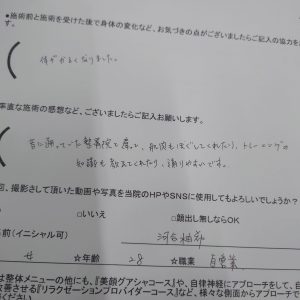 ●施術前と施術を受けた後で身体の変化など、お気づきの点がございましたらご記入の協力を
す。
体がかるくなりました。
率直な施術の感想など、ございましたらご記入お願いします。
昔に通っていた整骨院と違って、筋肉もほぐしてくれたり、トレーニングの
知識も教えてくれたり、通りやすいです。
回、撮影させて頂いた動画や写真を当院のHPやSNSに使用してもよろしいでしょうか?
□いいえ □顔出し無しならOK
名前(イニシャル可)
☆年齢 28 ☆職業 自営業
は整体メニューの他にも、『美顔グアシャコース』や、自律神経にアプローチをして、自
改善させる『リラクゼーションプロバイダーコース』など、様々な側面からアプローチで